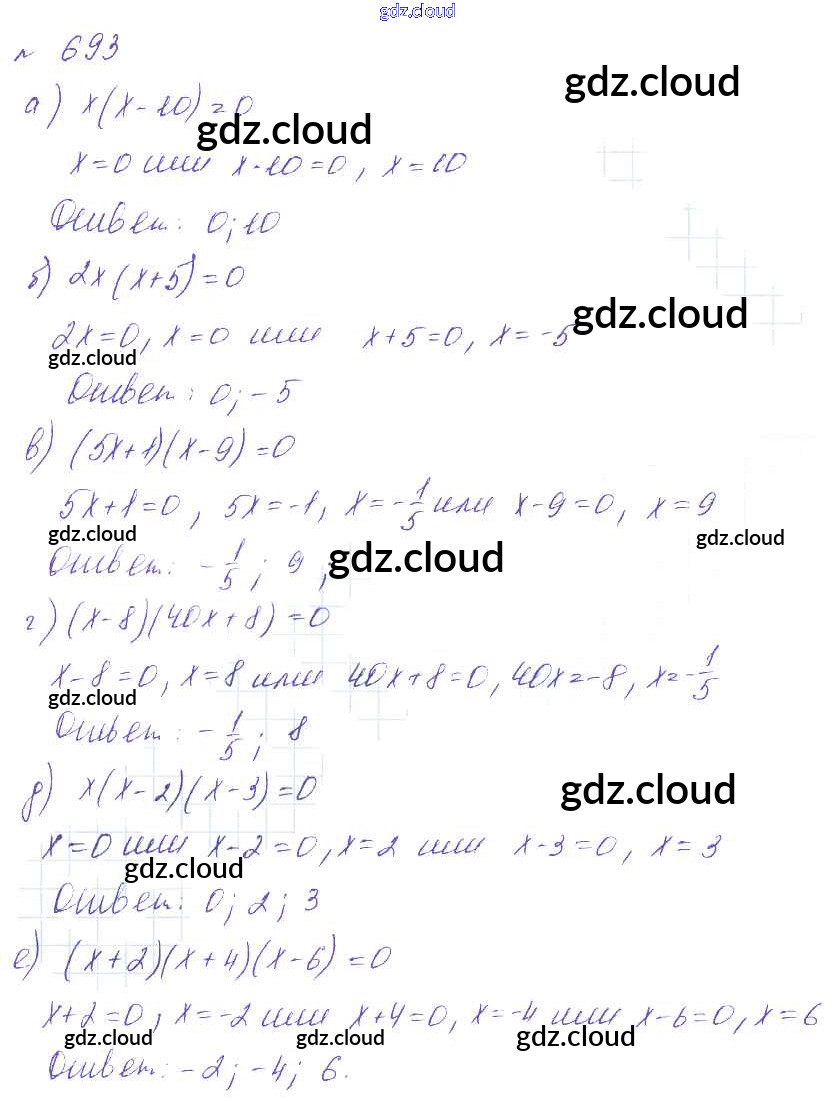 gdz.cloud
№ 693
gdz.cloud
а) x(x-10)=0
gdz.cloud
x=0 или x-10=0, x=10
Ответ: 0; 10
б) 2x(x+5)=0
gdz.cloud
2x=0, x=0 или x+5=0, x=-5
gdz.cloud
Ответ: 0; -5
в) (5x+1)(x-9)=0
5x+1=0, 5x=-1, x=-1/5 или x-9=0, x=9
gdz.cloud gdz.cloud
Ответ: -1/5; 9, gdz.cloud
г) (x-8)(40x+8)=0
x-8=0, x=8 или 40x+8=0, 40x=-8, x=-1/5
gdz.cloud
Ответ: -1/5; 8
д) x(x-2)(x-3)=0 gdz.cloud
x=0 или x-2=0, x=2 или x-3=0, x=3
gdz.cloud
Ответ: 0; 2; 3
е) (x+2)(x+4)(x-6)=0
x+2=0, x=-2 или x+4=0, x=-4 или x-6=0, x=6
gdz.cloud gdz.cloud gdz.cloud
Ответ: -2; -4; 6.